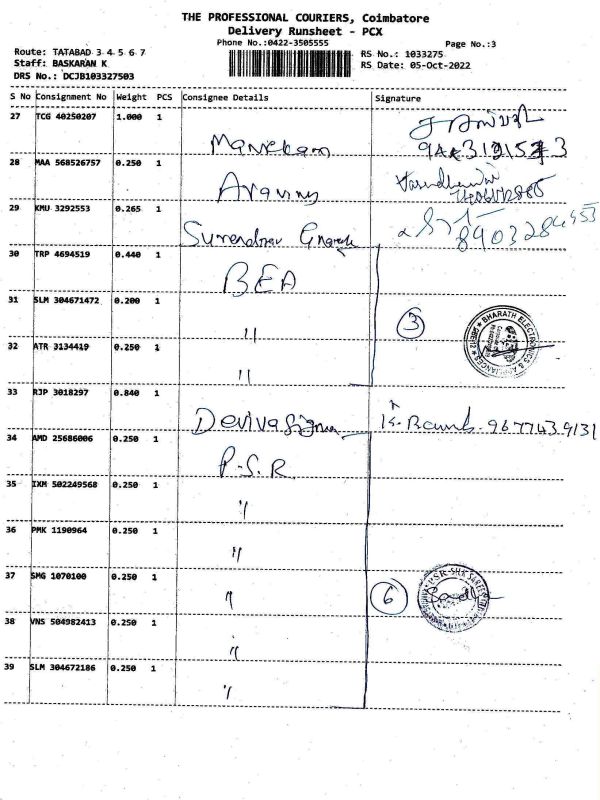 THE PROFESSIONAL COURIERS, Coimbatore
Delivery Runsheet - PCX
Phone No.:0422-3505555
Page No.:3
Route: TATABAD 3 4 5 6 7
RS No.: 1033275
Staff: BASKARAN K
RS Date: 05-Oct-2022
DRS No.: DCJB103327503
S No Consignment No Weight PCS Consignee Details Signature
27 TCG 40250207 1.000 1
28 MAA 568526757 0.250 1
29 KMU 3292553 0.265 1 Surendrav
8903284953
30 TRP 4694519 0.440 1 BEA
31 SLM 304671472 0.200 1 " 3
BHARATH ELECTRONICS & APPLIANCES
32 ATR 3134419 0.250 1 "
33 RJP 3018297 0.840 1 K. 9677439131
34 AMD 25686006 0.250 1 P.S.R.
35 IXM 502249568 0.250 1 "
36 PMK 1190964 0.250 1 "
37 SMG 1070100 0.250 1 " 6
38 VNS 504982413 0.250 1 "
39 SLM 304672186 0.250 1 "